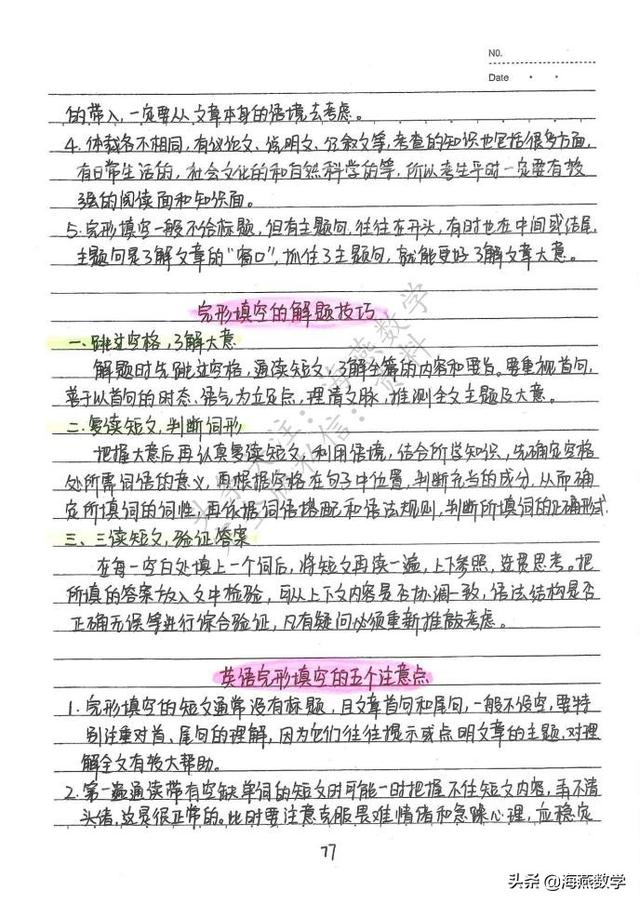 NO.
Date
的带入,一定要从文章本身的语境去考虑。
4.体裁各不相同,有议论文、说明文、记叙文等,考查的知识也包括很多方面,
有日常生活的,社会文化的和自然科学的等,所以考生平时一定要有较
强的阅读面和知识面。
5.完形填空一般不给标题,但有主题句,往往在开头,有时也在中间或结尾,
主题句是了解文章的“窗口”,抓住了主题句,就能更好了解文章大意。
完形填空的解题技巧
一、跳过空格,了解大意
解题时先跳过空格,通读短文,了解全篇的内容和要旨。要重视首句,
善于以首句的时态、语气为立足点,理清文脉,推测全文主题及大意。
二、复读短文,判断词形
把握大意后再认真复读短文,利用语境,结合所学知识,先确定空格
处所需词语的意义,再根据空格在句子中位置,判断充当的成分,从而确
定所填词的词性,再依据词语搭配和语法规则,判断所填词的正确形式
三、三读短文,验证答案
在每一空白处填上一个词后,将短文再读一遍,上下参照,连贯思考。把
所填的答案放入文中检验,可从上下文内容是否协调一致,语法结构是否
正确无误等进行综合验证,凡有疑问必须重新推敲考虑。
英语完形填空的五个注意点
1.完形填空的短文通常没有标题,且文章首句和尾句,一般不设空,要特
别注重对首、尾句的理解,因为它们往往提示或点明文章的主题,对理
解全文有较大帮助。
2.第一遍通读带有空缺单词的短文时可能一时把握不住短文内容,弄不清
头绪,这是很正常的。此时要注意克服畏难情绪和急躁心理,应稳定
77
头条@海燕数学